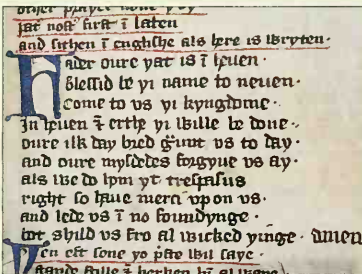 þat nost first ī laten
and sithen ī englishe als here is wryten·
Fader oure yat is ī heuen·
Blessid be yi name to neuen·
Come to vs yi kyngdome·
In heuen ⁊ erthe yi wille be done·
oure ilk day bred gͣunt vs to day·
and oure mysdedes forgyue vs ay·
als we do hom yt trespasus
right so haue merci vpon vs·
and lede vs ī no foundynge·
bot shild vs fro al wicked yinge· amen